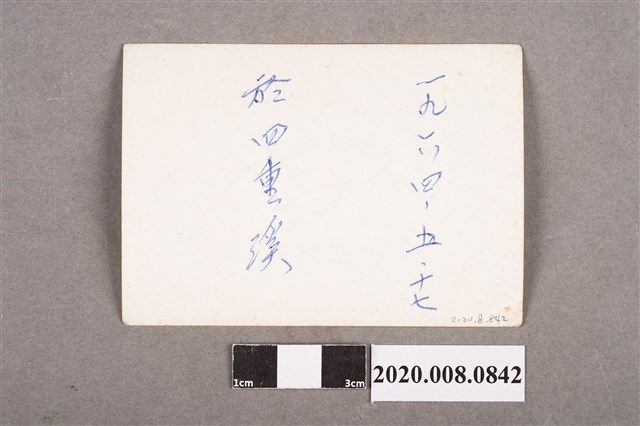 一九六四、五、十七
於四重溪
2020.8.842
1cm
3cm
2020.008.0842